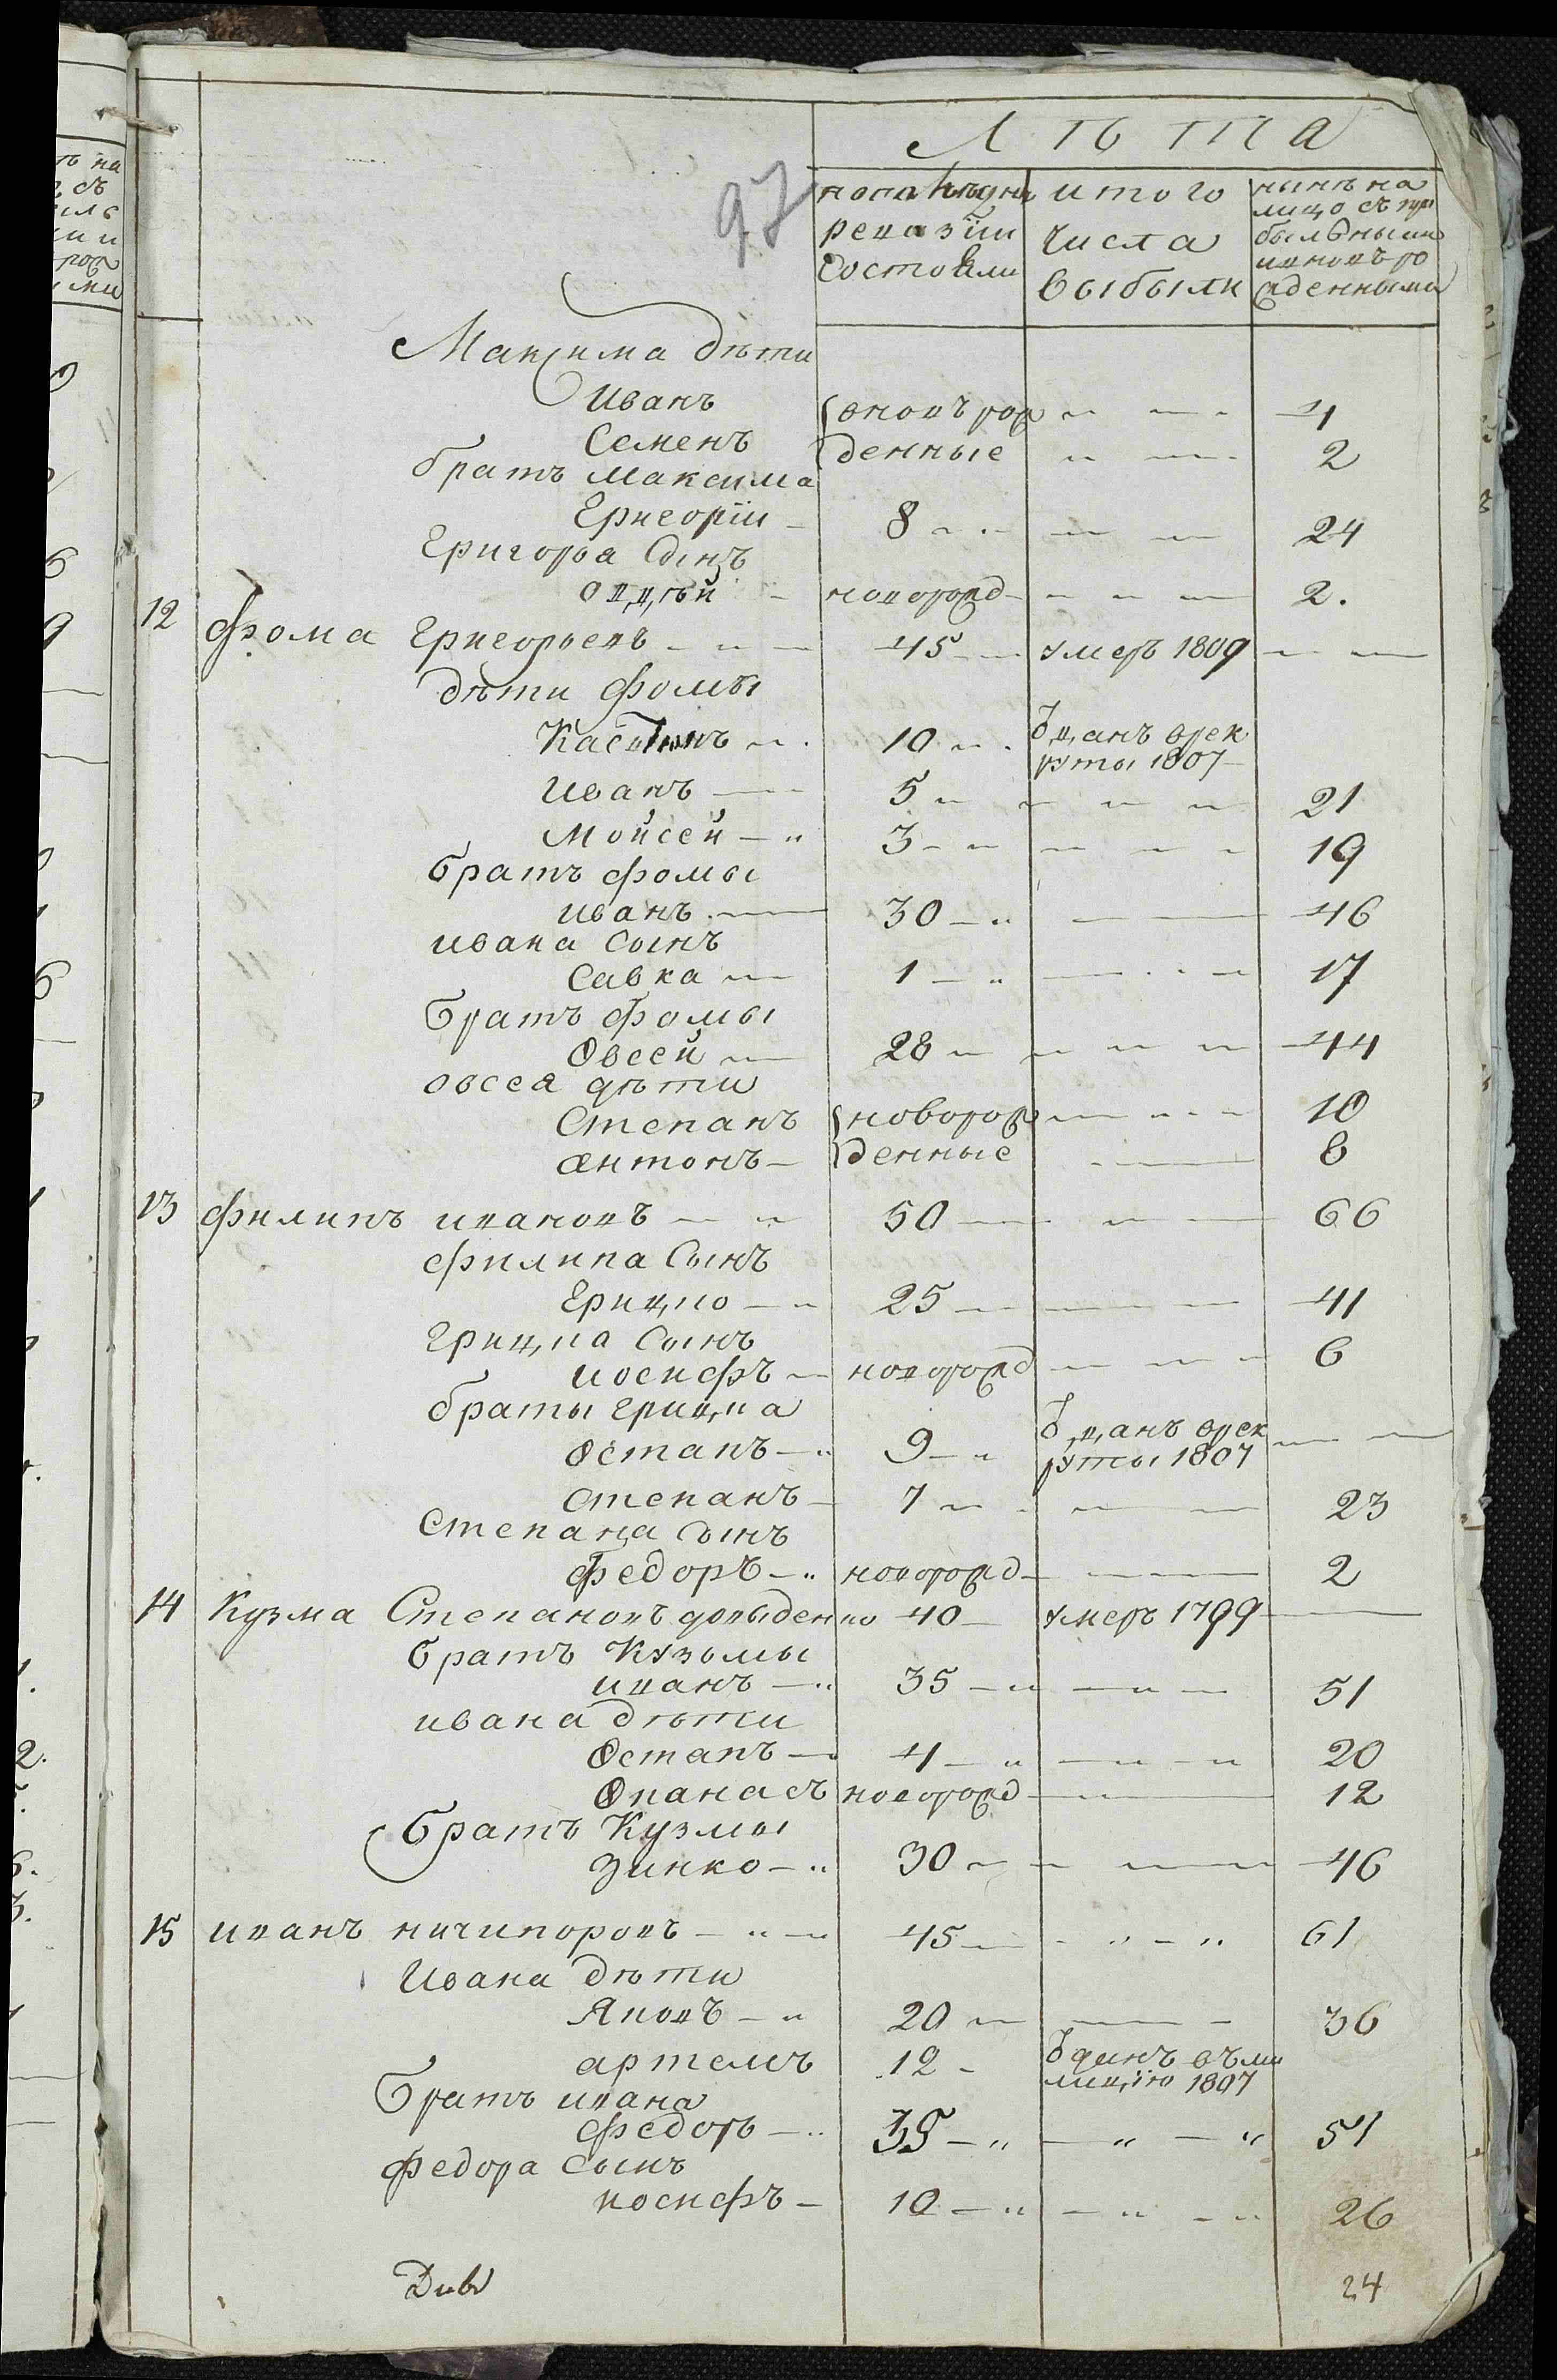 97
Лѣта
ревизіи
состояли
и того
числа
выбыли
нынѣ на
лицо съ при
былыми
и новоро
жденными
Максима дѣти
Иванъ новорож 4
Семенъ денные 2
братъ Максима
Григорій 8 24
Григорья Сынъ
новорожд 2.
12 Фома Григорьевъ 45 умеръ 1809
дѣти Фомы
10 отданъ врек
руты 1807
Иванъ 5 21
Мойсей 3 19
братъ Фомы
Иванъ 30 46
Ивана сынъ
Савка 1 17
братъ Фомы
Овсей 28 44
Овсея дѣти
Степанъ новорож 10
Антонъ денные 8
13 Филипъ Ивановъ 50 66
Филипа Сынъ
Грицко 25 41
Грицка Сынъ
Иосифъ новорожд 6
браты Грицка
Остапъ 9 отданъ врек
руты 1807
Степанъ 7 23
Степана Сынъ
Федоръ новорожд 2
14 Кузма Степановъ довыденко 40 умеръ 1799
братъ Кузьмы
Иванъ 35 51
Ивана дѣти
Остапъ 4 20
Опанасъ новорожд 12
братъ Кузмы
Зинко 30 46
15 Иванъ Ничипоровъ 45 61
Ивана дѣти
Яковъ 20 36
Артемъ 12 въ ми
лицію 1807
братъ Ивана
Федоръ 35 51
Федора Сынъ
Иосифъ 10 26
24